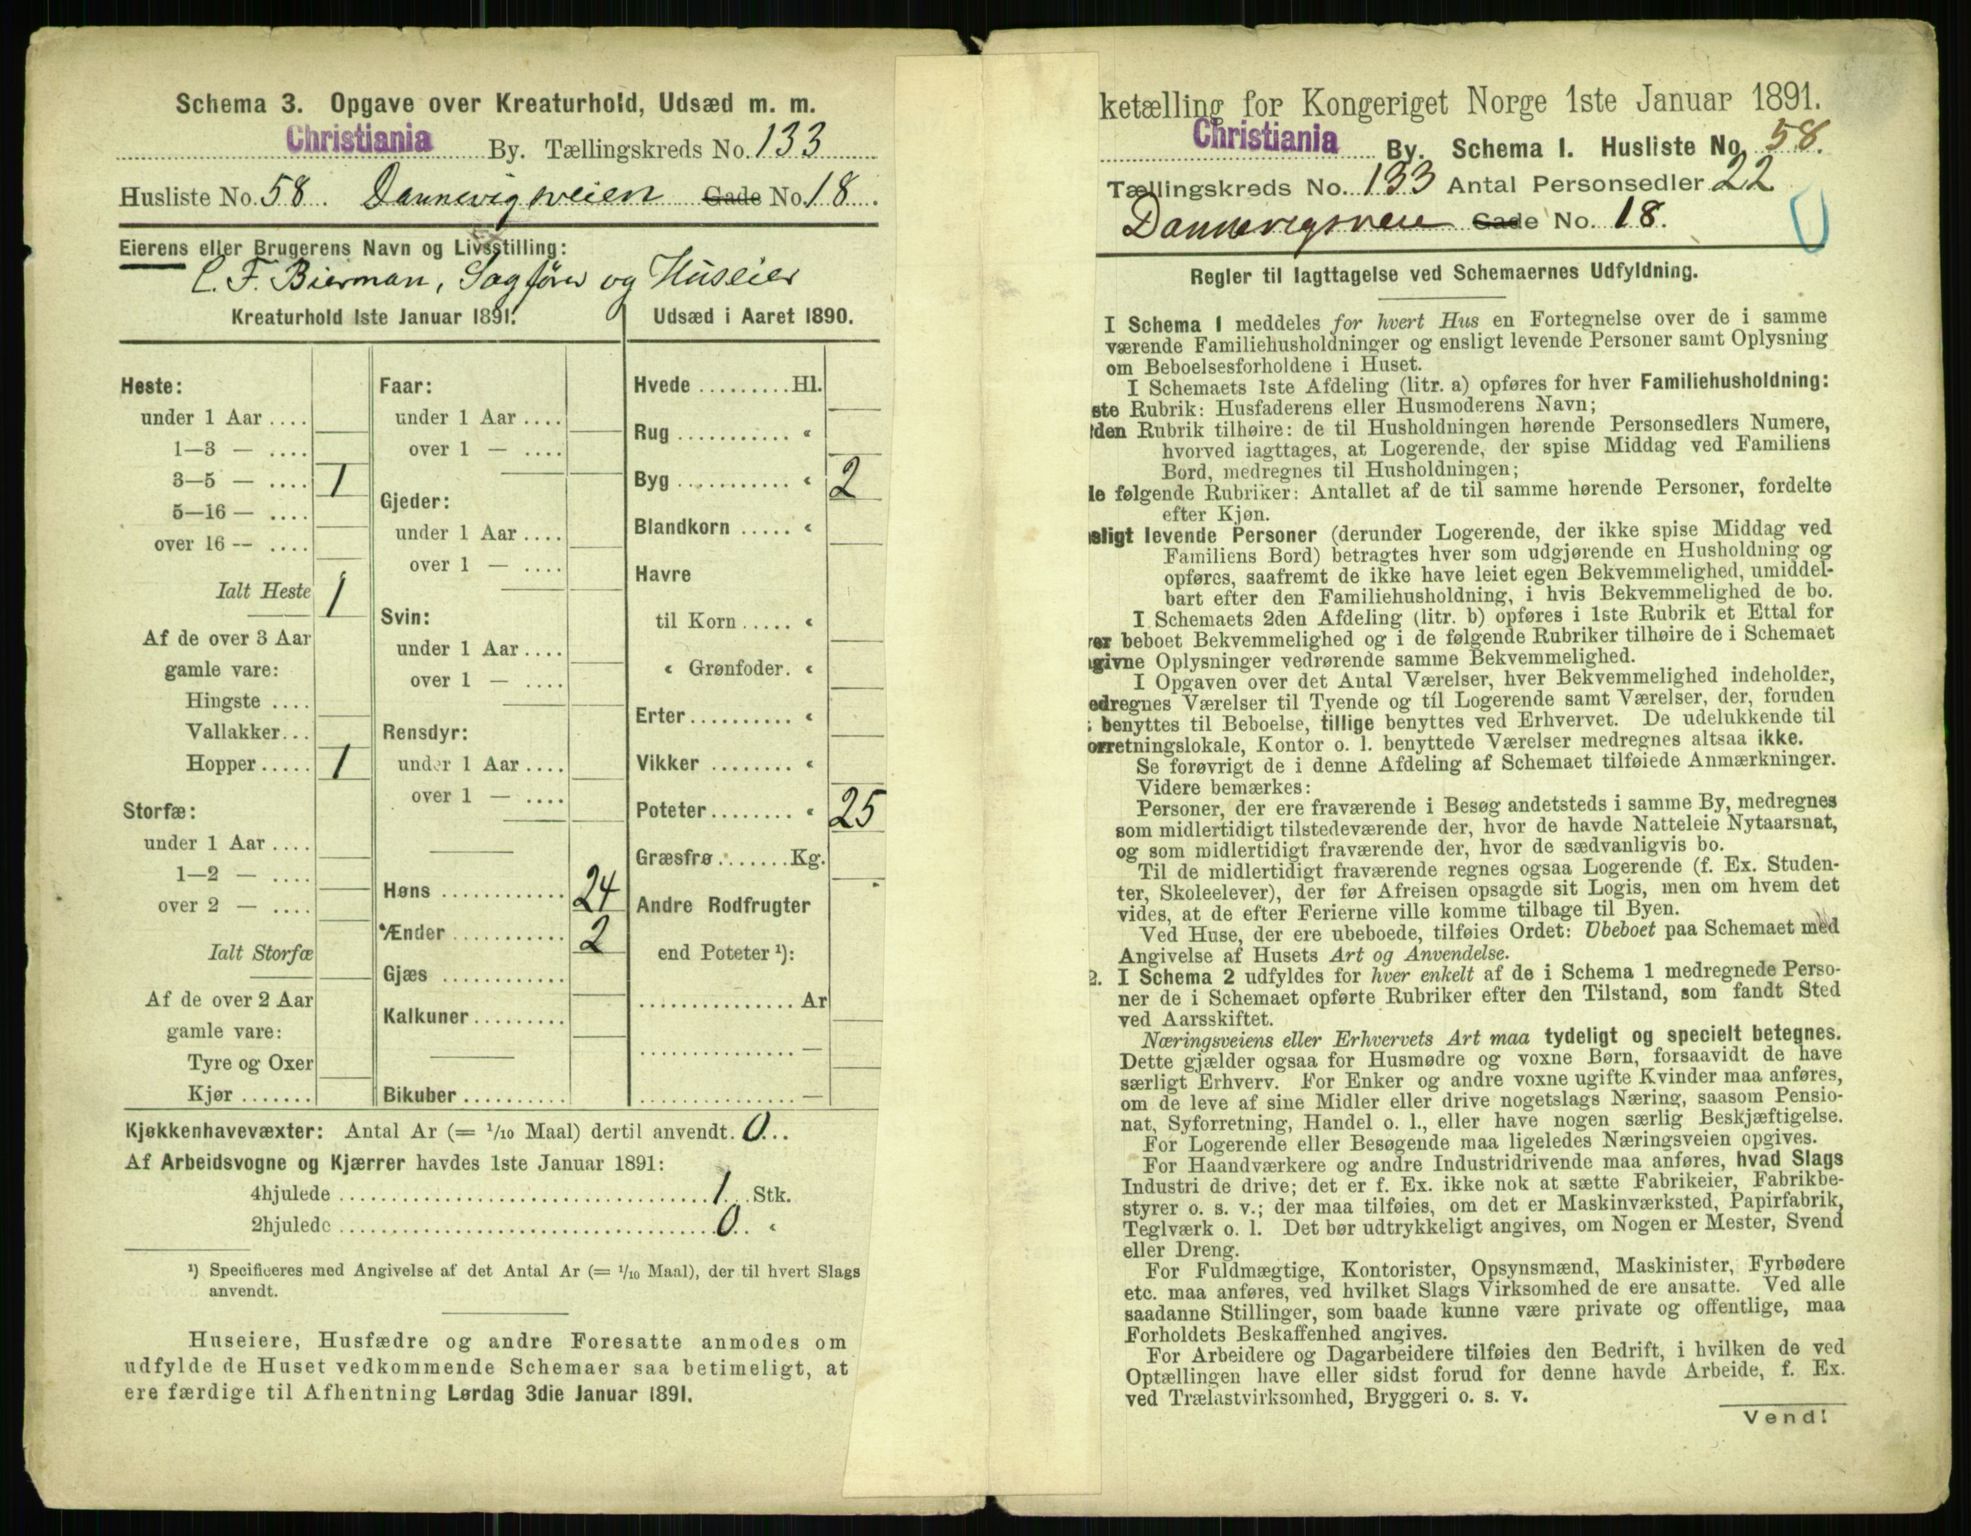 Schema 3. Opgave over Kreaturhold, Udsæd m. m.
Christiania By. Tællingskreds No. 133
Husliste No. 58. Dannevigsveien Gade No. 18.
Eierens eller Brugerens Navn og Livsstilling:
C. F. Bierman, Sagfører og Huseier
Kreaturhold 1ste Januar 1891.
Heste:
under 1 Aar ....
1—3 — ....
3—5 — .... 1
5—16 — ....
over 16 — ....
Ialt Heste 1
Af de over 3 Aar
gamle vare:
Hingste ....
Vallakker...
Hopper..... 1
Storfæ:
under 1 Aar ....
1—2 — ....
over 2 — ....
Ialt Storfæ
Af de over 2 Aar
gamle vare:
Tyre og Oxer
Kjør .......
Faar:
under 1 Aar ....
over 1 — ....
Gjeder:
under 1 Aar ....
over 1 — ....
Svin:
under 1 Aar ....
over 1 — ....
Rensdyr:
under 1 Aar ....
over 1 — ....
Høns ............ 24
Ænder ........... 2
Gjæs ............
Kalkuner.........
Bikuber ..........
Udsæd i Aaret 1890.
Hvede ......... Hl.
Rug ........... «
Byg ........... « 2
Blandkorn ..... «
Havre
til Korn ..... «
« Grønfoder. «
Erter.......... «
Vikker ........ «
Poteter........ « 25
Græsfrø....... Kg.
Andre Rodfrugter
end Poteter ¹):
............... Ar
............... —
............... —
Kjøkkenhavevæxter: Antal Ar (= 1/10 Maal) dertil anvendt. 0...
Af Arbeidsvogne og Kjærrer havdes 1ste Januar 1891:
4hjulede .................................... 1 Stk.
2hjulede .................................... 0 «
¹) Specificeres med Angivelse af det Antal Ar (= 1/10 Maal), der til hvert Slags
anvendt.
Huseiere, Husfædre og andre Foresatte anmodes om
udfylde de Huset vedkommende Schemaer saa betimeligt, at
ere færdige til Afhentning Lørdag 3die Januar 1891.
ketælling for Kongeriget Norge 1ste Januar 1891.
Christiania By. Schema 1. Husliste No. 58.
Tællingskreds No. 133 Antal Personsedler 22
Dannevigsveie Gade No. 18.
Regler til Iagttagelse ved Schemaernes Udfyldning.
I Schema 1 meddeles for hvert Hus en Fortegnelse over de i samme
værende Familiehusholdninger og ensligt levende Personer samt Oplysning
om Beboelsesforholdene i Huset.
I Schemaets 1ste Afdeling (litr. a) opføres for hver Familiehusholdning:
ste Rubrik: Husfaderens eller Husmoderens Navn;
den Rubrik tilhøire: de til Husholdningen hørende Personsedlers Numere,
hvorved iagttages, at Logerende, der spise Middag ved Familiens
Bord, medregnes til Husholdningen;
le følgende Rubriker: Antallet af de til samme hørende Personer, fordelte
efter Kjøn.
sligt levende Personer (derunder Logerende, der ikke spise Middag ved
Familiens Bord) betragtes hver som udgjørende en Husholdning og
opføres, saafremt de ikke have leiet egen Bekvemmelighed, umiddel-
bart efter den Familiehusholdning, i hvis Bekvemmelighed de bo.
I Schemaets 2den Afdeling (litr. b) opføres i 1ste Rubrik et Ettal for
er beboet Bekvemmelighed og i de følgende Rubriker tilhøire de i Schemaet
givne Oplysninger vedrørende samme Bekvemmelighed.
I Opgaven over det Antal Værelser, hver Bekvemmelighed indeholder,
edregnes Værelser til Tyende og til Logerende samt Værelser, der, foruden
benyttes til Beboelse, tillige benyttes ved Erhvervet. De udelukkende til
orretningslokale, Kontor o. l. benyttede Værelser medregnes altsaa ikke.
Se forøvrigt de i denne Afdeling af Schemaet tilføiede Anmærkninger.
Videre bemærkes:
Personer, der ere fraværende i Besøg andetsteds i samme By, medregnes
som midlertidigt tilstedeværende der, hvor de havde Natteleie Nytaarsnat,
og som midlertidigt fraværende der, hvor de sædvanligvis bo.
Til de midlertidigt fraværende regnes ogsaa Logerende (f. Ex. Studen-
ter, Skoleelever), der før Afreisen opsagde sit Logis, men om hvem det
vides, at de efter Ferierne ville komme tilbage til Byen.
Ved Huse, der ere ubeboede, tilføies Ordet: Ubeboet paa Schemaet med
Angivelse af Husets Art og Anvendelse.
2. I Schema 2 udfyldes for hver enkelt af de i Schema 1 medregnede Perso-
ner de i Schemaet opførte Rubriker efter den Tilstand, som fandt Sted
ved Aarsskiftet.
Næringsveiens eller Erhvervets Art maa tydeligt og specielt betegnes.
Dette gjælder ogsaa for Husmødre og voxne Børn, forsaavidt de have
særligt Erhverv. For Enker og andre voxne ugifte Kvinder maa anføres,
om de leve af sine Midler eller drive nogetslags Næring, saasom Pensio-
nat, Syforretning, Handel o. l., eller have nogen særlig Beskjæftigelse.
For Logerende eller Besøgende maa ligeledes Næringsveien opgives.
For Haandværkere og andre Industridrivende maa anføres, hvad Slags
Industri de drive; det er f. Ex. ikke nok at sætte Fabrikeier, Fabrikbe-
styrer o. s. v.; der maa tilføies, om det er Maskinværksted, Papirfabrik,
Teglværk o. l. Det bør udtrykkeligt angives, om Nogen er Mester, Svend
eller Dreng.
For Fuldmægtige, Kontorister, Opsynsmænd, Maskinister, Fyrbødere
etc. maa anføres, ved hvilket Slags Virksomhed de ere ansatte. Ved alle
saadanne Stillinger, som baade kunne være private og offentlige, maa
Forholdets Beskaffenhed angives.
For Arbeidere og Dagarbeidere tilføies den Bedrift, i hvilken de ved
Optællingen have eller sidst forud for denne havde Arbeide, f. Ex.
ved Trælastvirksomhed, Bryggeri o. s. v.
Vend!